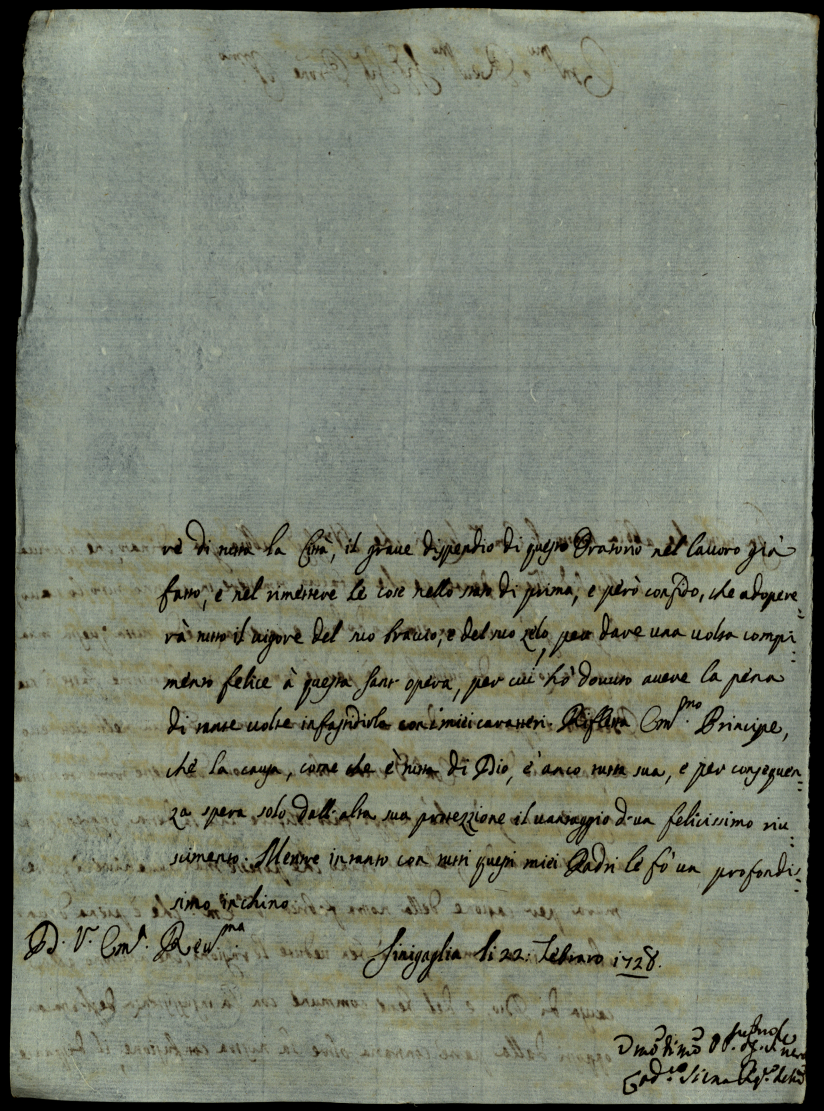 re di tutta la Città, il grave dispendio di questo Oratorio nel lavoro già
fatto, e nel rimettere le cose nello stato di prima, e però confido, che adopere=
rà tutto il vigore del suo braccio, e del suo zelo, per dare una volta compi=
mento felice à questa sant' opera, per cui hò dovuto avere la pena
di tante volte infastidirla con i miei caratteri. Rifletta Em.mo Principe,
che la causa, come che è tutta di Dio, è anco tutta sua, e per conseguen=
za spera solo dall' alta sua protezzione il vantaggio d' un felicissimo riu=
scimento. Mentre intanto con tutti questi miei Padri le fò un profondis=
simo inchino
D. V. Em.a Rev.ma
Sinigaglia li 22. Febraro 1728.